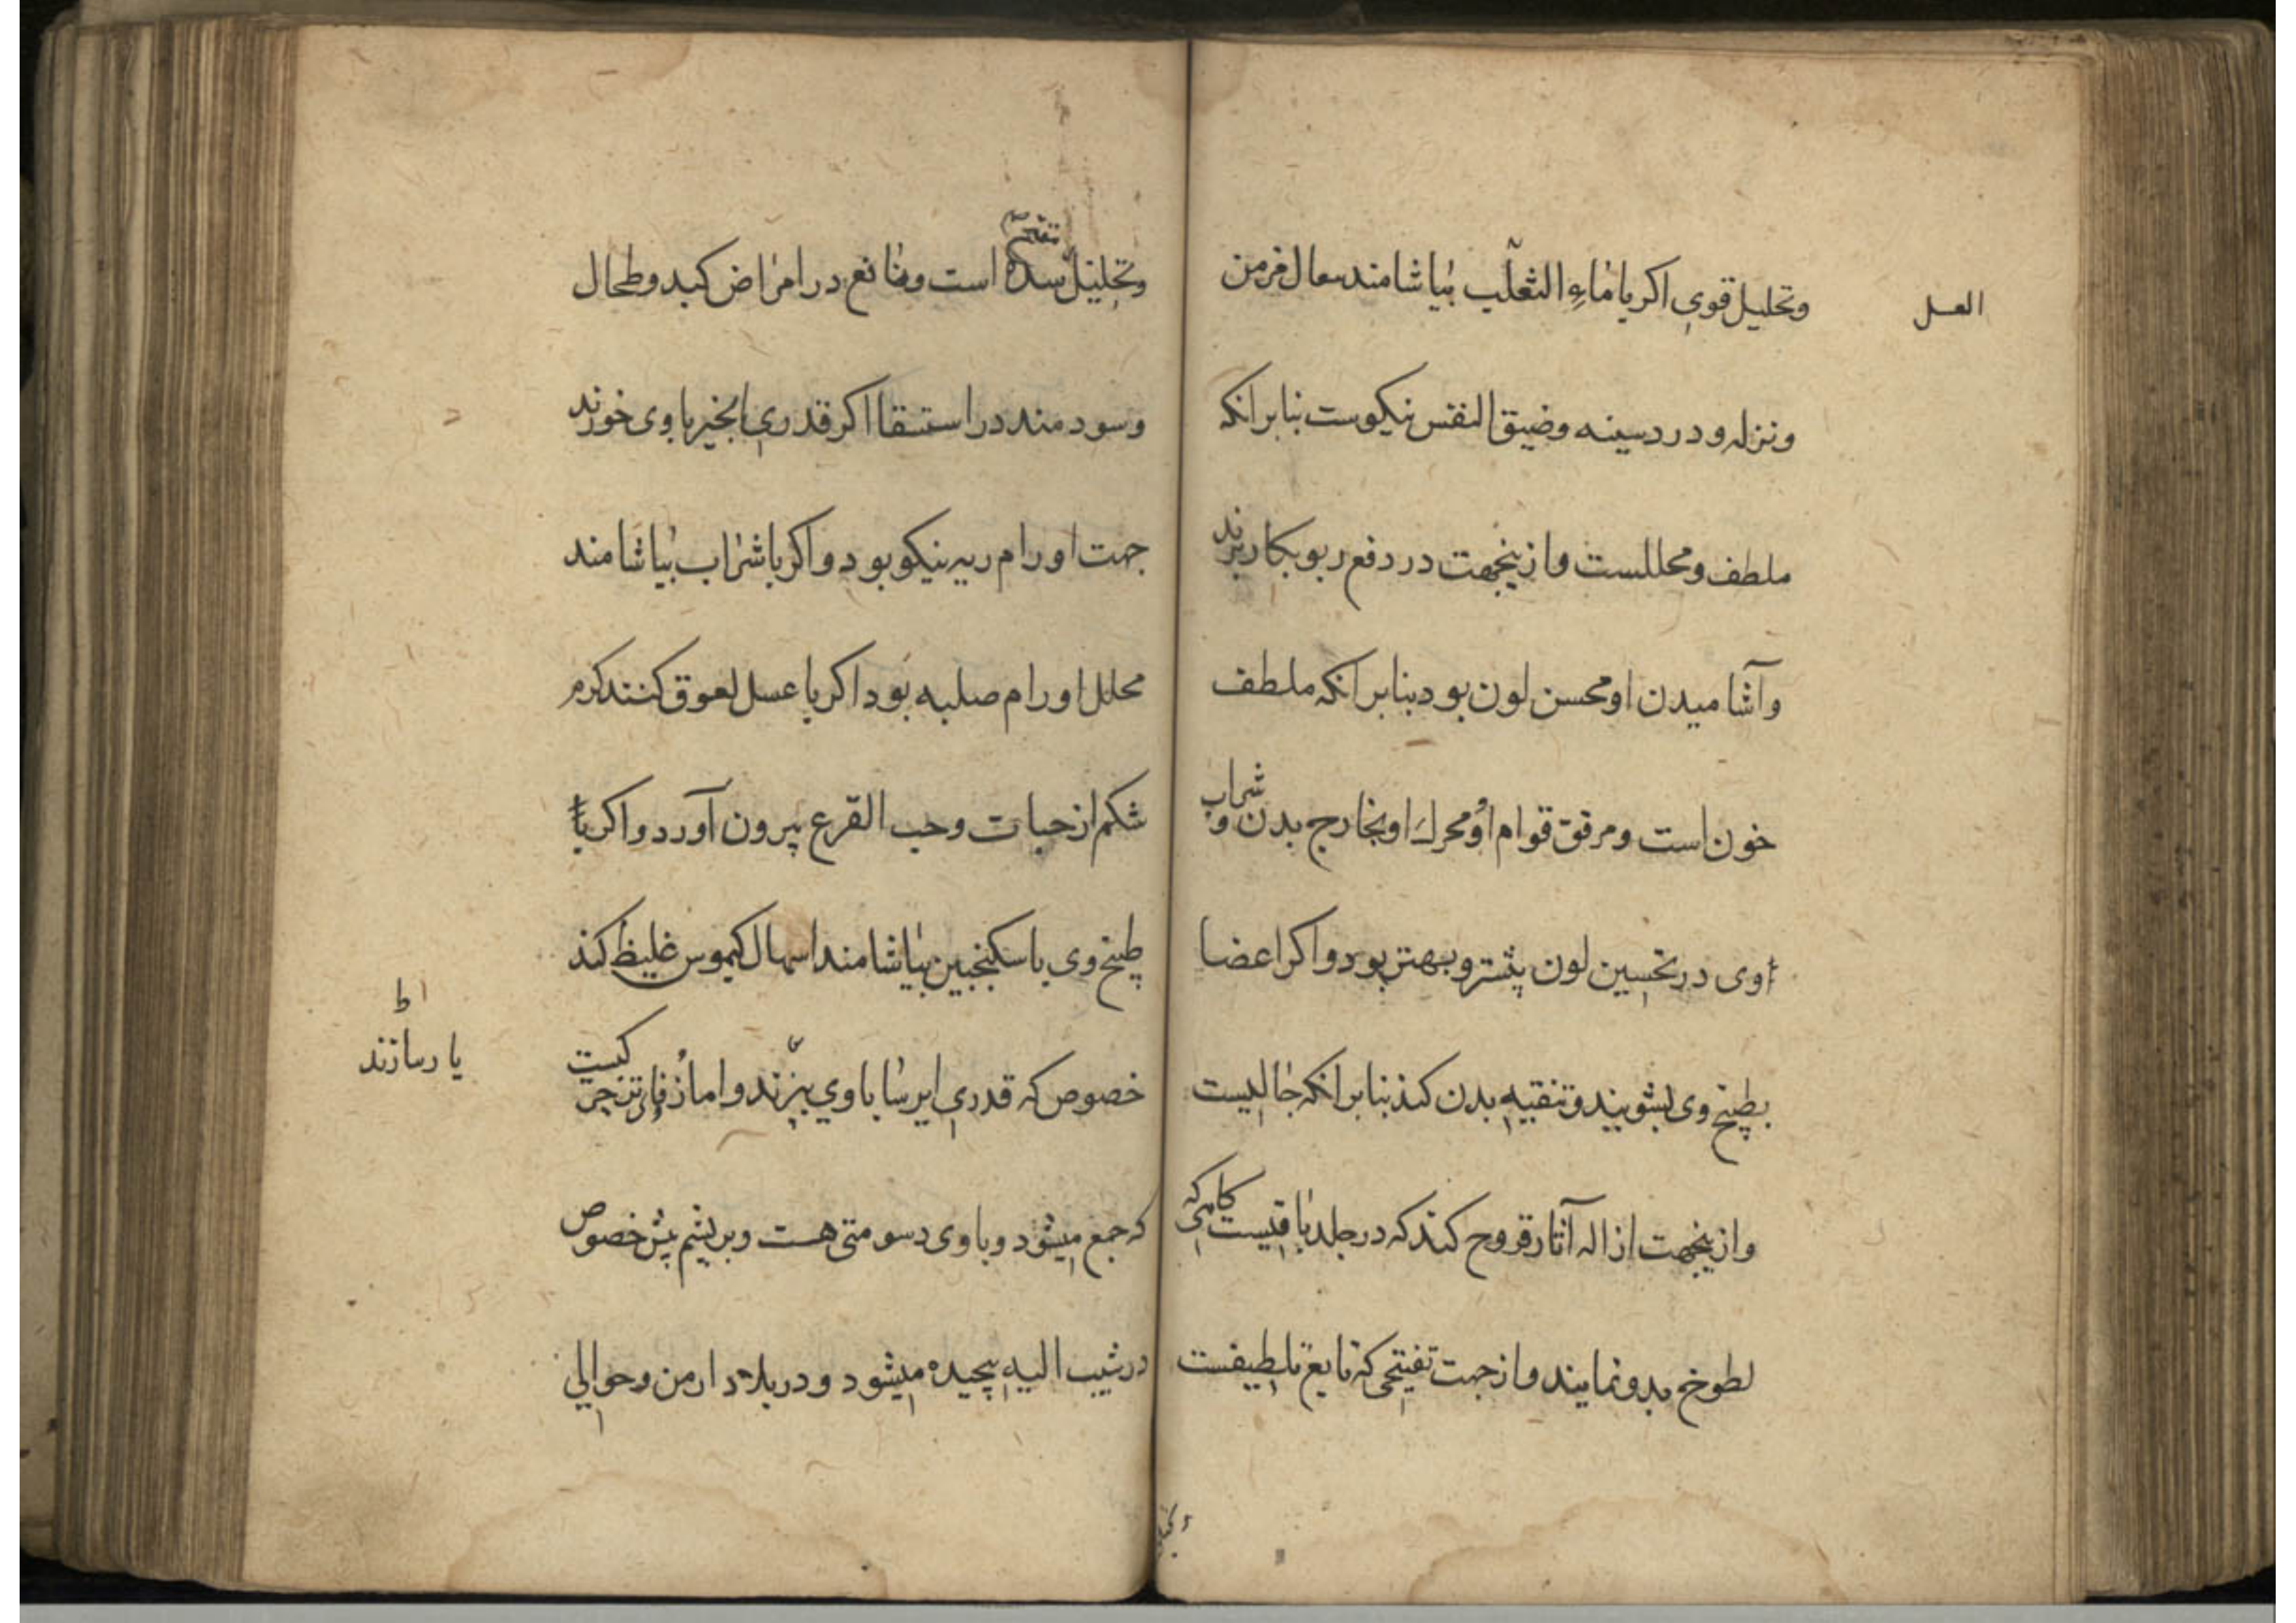 العسل
وتحليل قوي اكر با ماء الثعلب بياشامند سعال مزمن
ونزله ودرد سينه وضيق النفس نيكوست بنابر انكه
ملطف ومحللست وازينجهت در دفع ربو بكار برند
وآشاميدن او محسن لون بود بنابر انكه ملطف
خون است ومرقق قوام او ومحرك او بخارج بدن و شراب
وى در تحسين لون پشتر وبهتر بود واكر اعضا
بطبيخ وى بشويند وتنقيه بدن كند بنابر انكه جاليست
وازينجهت ازاله آثار قروح كند كه در جلد باقيست
لطوخ بدو نمايند واز جهت تفتيحى كه تابع تلطيفست
وتحليل سده است ونافع در امراض كبد وطحال
وسودمند در استسقا اكر قدري انجير با وى خورند
جهت اورام ريه نيكو بود واكر با شراب بياشامند
محلل اورام صلبه بود اكر با عسل لعوق كنند كرم
شكم از حيات وحب القرع بيرون آورد واكر با
طبيخ وى با سكنجبين بياشامند اسهال كيموس غليظ كند
خصوص كه قدري ايرسا با وي بپزند واما زفاى تر چركيست
يا رسازند
كه جمع ميشود وبا وى دسومتى هست وبر پشم ميش خصوص
در شيب اليه پيچيده ميشود ودر بلاد ارمن وحوالي